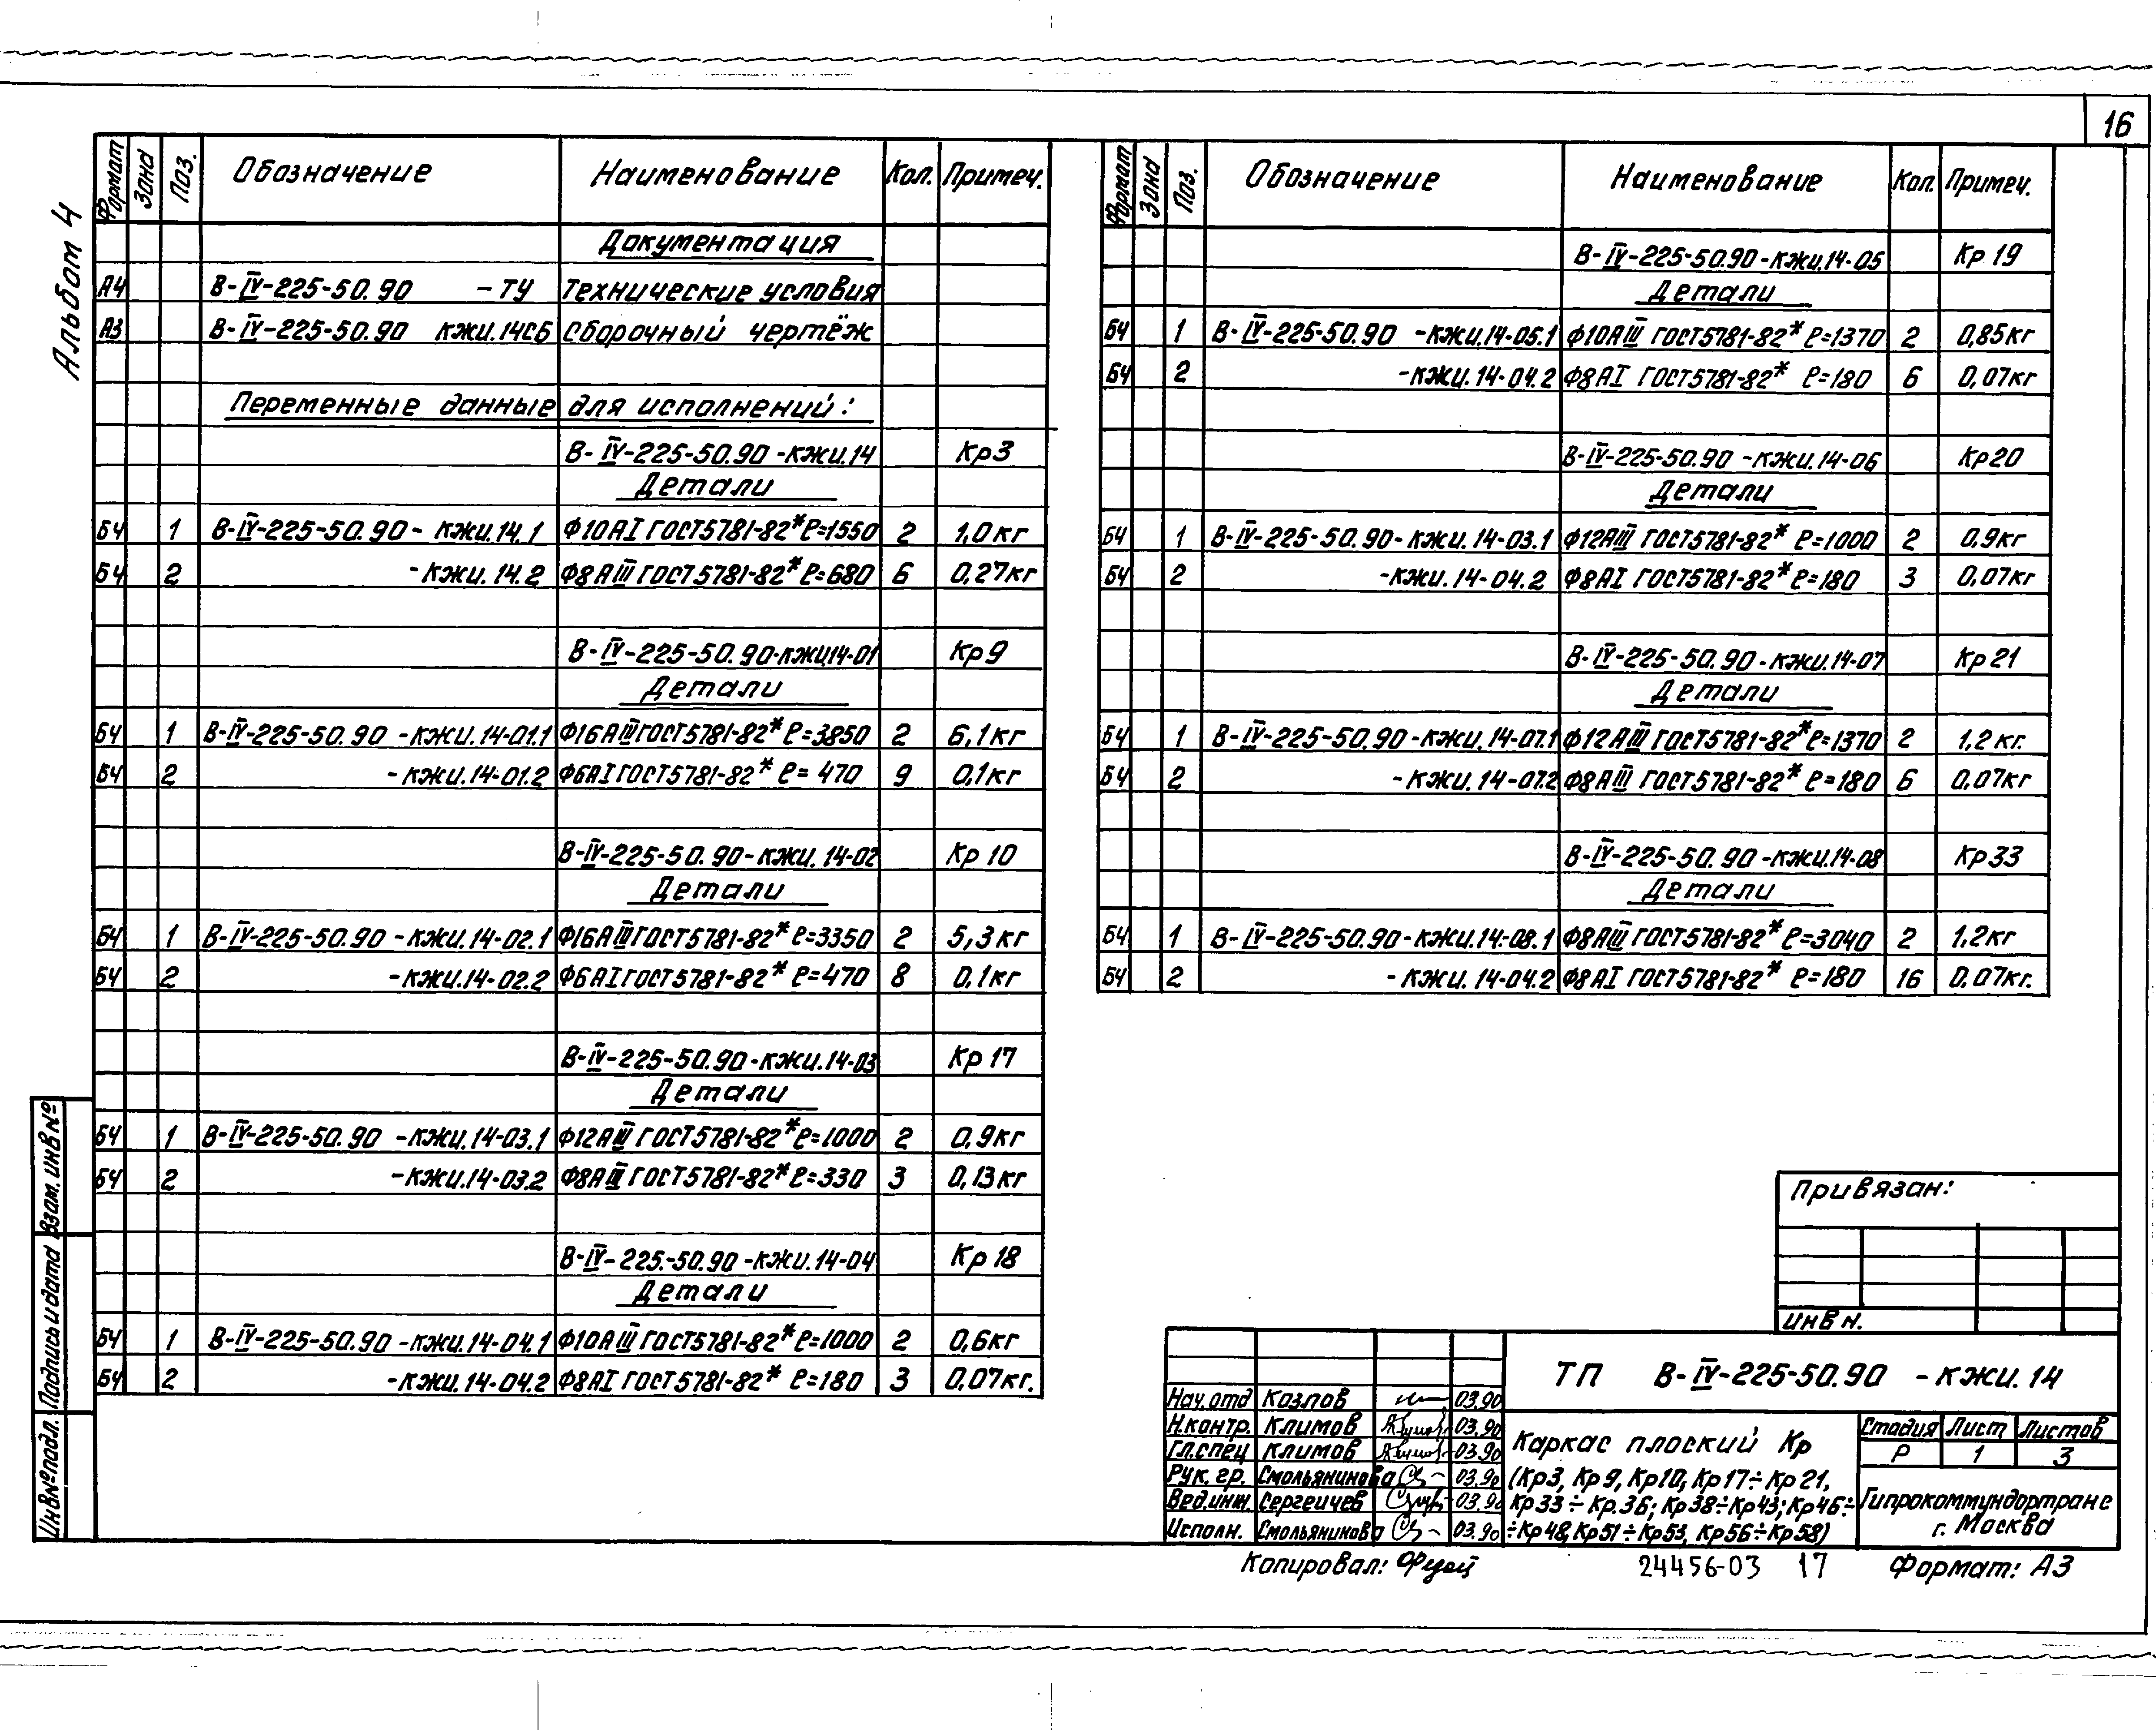 16
Альбом 4
Формат Зона Поз. Обозначение Наименование Кол. Примеч.
Документация
А4 В-IV-225-50.90 -ТУ Технические условия
А3 В-IV-225-50.90 кжи.14СБ Сборочный чертёж
Переменные данные для исполнений:
В-IV-225-50.90-кжи.14 Кр3
Детали
БЧ 1 В-IV-225-50.90- кжи.14.1 Ф10АI ГОСТ5781-82* ℓ=1550 2 1,0кг
БЧ 2 -кжи.14.2 Ф8АIII ГОСТ5781-82* ℓ=680 6 0,27кг
В-IV-225-50.90-кжи14-01 Кр9
Детали
БЧ 1 В-IV-225-50.90 -кжи.14-01.1 Ф16АIII ГОСТ5781-82* ℓ=3850 2 6,1кг
БЧ 2 -кжи.14-01.2 Ф6АI ГОСТ5781-82* ℓ= 470 9 0,1кг
В-IV-225-50.90-кжи.14-02 Кр10
Детали
БЧ 1 В-IV-225-50.90 -кжи.14-02.1 Ф16АIII ГОСТ5781-82* ℓ=3350 2 5,3кг
БЧ 2 -кжи.14-02.2 Ф6АI ГОСТ5781-82* ℓ=470 8 0,1кг
В-IV-225-50.90-кжи.14-03 Кр17
Детали
БЧ 1 В-IV-225-50.90 -кжи.14-03.1 Ф12АIII ГОСТ5781-82* ℓ=1000 2 0,9кг
БЧ 2 -кжи.14-03.2 Ф8АIII ГОСТ5781-82* ℓ=330 3 0,13кг
В-IV-225-50.90-кжи.14-04 Кр18
Детали
БЧ 1 В-IV-225-50.90 -кжи.14-04.1 Ф10АIII ГОСТ5781-82* ℓ=1000 2 0,6кг
БЧ 2 -кжи.14-04.2 Ф8АI ГОСТ5781-82* ℓ=180 3 0,07кг.
Формат Зона Поз. Обозначение Наименование Кол. Примеч.
В-IV-225-50.90-кжи.14-05 Кр19
Детали
БЧ 1 В-IV-225-50.90 -кжи.14-05.1 Ф10АIII ГОСТ5781-82* ℓ=1370 2 0,85кг
БЧ 2 -кжи.14-04.2 Ф8АI ГОСТ5781-82* ℓ=180 6 0,07кг
В-IV-225-50.90 -кжи.14-06 Кр20
Детали
БЧ 1 В-IV-225-50.90-кжи.14-03.1 Ф12АIII ГОСТ5781-82* ℓ=1000 2 0,9кг
БЧ 2 -кжи.14-04.2 Ф8АI ГОСТ5781-82* ℓ=180 3 0,07кг
В-IV-225-50.90-кжи.14-07 Кр21
Детали
БЧ 1 В-IV-225-50.90-кжи.14-07.1 Ф12АIII ГОСТ5781-82* ℓ=1370 2 1,2кг.
БЧ 2 -кжи.14-07.2 Ф8АIII ГОСТ5781-82* ℓ=180 6 0,07кг
В-IV-225-50.90-кжи.14-08 Кр33
Детали
БЧ 1 В-IV-225-50.90-кжи.14-08.1 Ф8АIII ГОСТ5781-82* ℓ=3040 2 1,2кг
БЧ 2 -кжи.14-04.2 Ф8АI ГОСТ5781-82* ℓ=180 16 0,07кг.
Взам. инв №
Подпись и дата
Инв № подл.
Привязан:
инв н.
ТП В-IV-225-50.90 -кжи.14
Нач.отд Козлов 03.90
Н.контр. Климов 03.90
Гл.спец Климов 03.90
Рук. гр. Смольянинова 03.90
Вед.инж. Сергеичев 03.90
Исполн. Смольянинова 03.90
Каркас плоский Кр
(Кр3, Кр9, Кр10, Кр17÷Кр21,
Кр33÷Кр.36; Кр38÷Кр43; Кр46÷
÷Кр48, Кр51÷Кр53, Кр56÷Кр58)
Стадия Лист Листов
Р 1 3
Гипрокоммундортранс
г. Москва
Копировал: 24456-03 17 Формат: А3